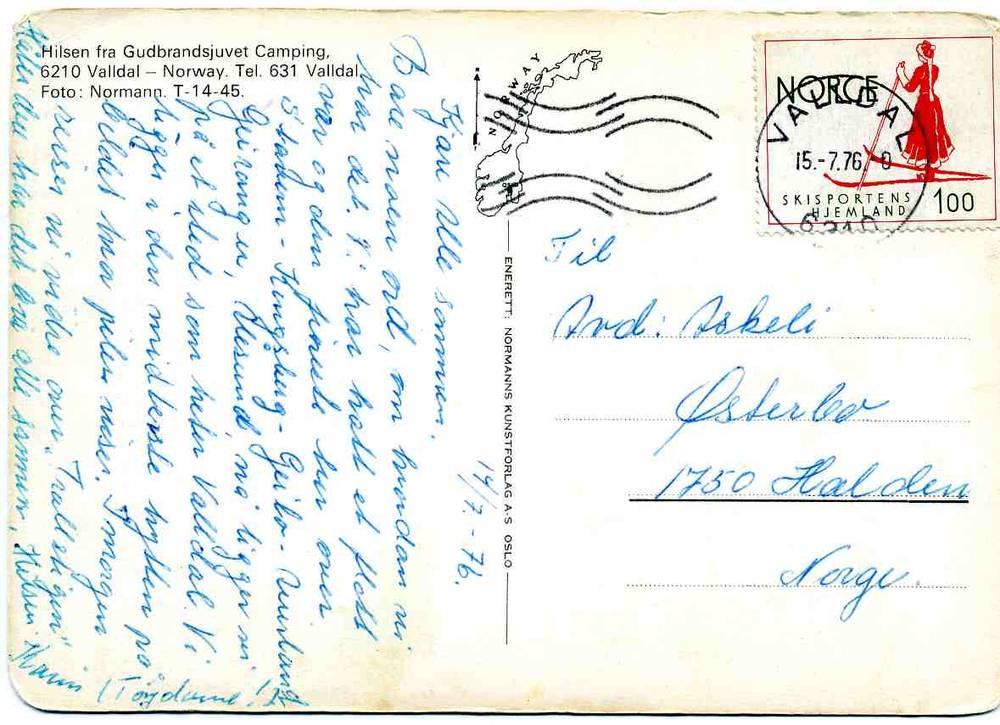 Hilsen fra Gudbrandsjuvet Camping,
6210 Valldal – Norway. Tel. 631 Valldal.
Foto: Normann. T-14-45.
14/7-76.
Kjære alle sammen.
Bare noen ord, om hvordan vi
har det. Vi har hatt et flott
vær og den fineste tur over
Støden - Kongsberg - Geilo - Aurland
Geiranger, Ålesund, nå ligger vi
på et sted som heter Valldal. Vi
ligger i den midterste hytten på
bildet hva pilen viser. I morgen
reiser vi videre over "Trollstigen"
Håper dere har det bra alle sammen, Hilsen Karin
NORWAY
ENERETT: NORMANNS KUNSTFORLAG A-S OSLO
NORGE
SKISPORTENS
HJEMLAND
100
VALLDAL
15.-7.76
6210
Til
Avd: Askeli
Østerbo
1750 Halden
Norge.